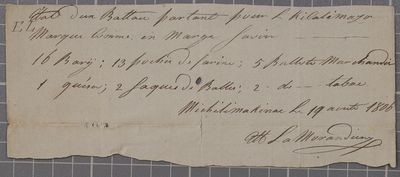 Etat d'un Batteau partant pour le Kilalémazo
LL Marque Comme en Marge Savoir
16 Baril; 13 poches de farine; 5 Ballots Marchandises
1 quéses; 2 Saques de Balles; 2 - ds - tabac
Michilimakinac Le 19 août 1806
La Morandiere